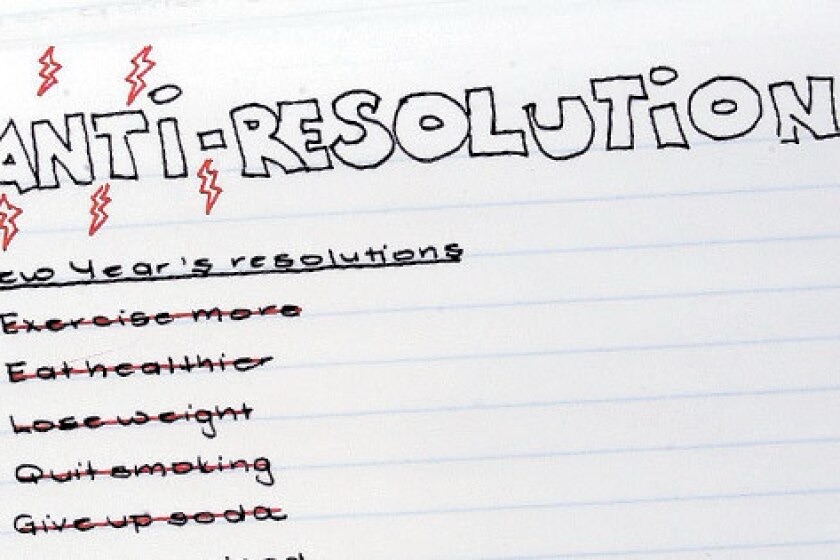 ANTi-RESOLUTiON
ew Year's resolutions
Exercise more
Eat healthier
Lose weight
Quit smoking
Give up soda